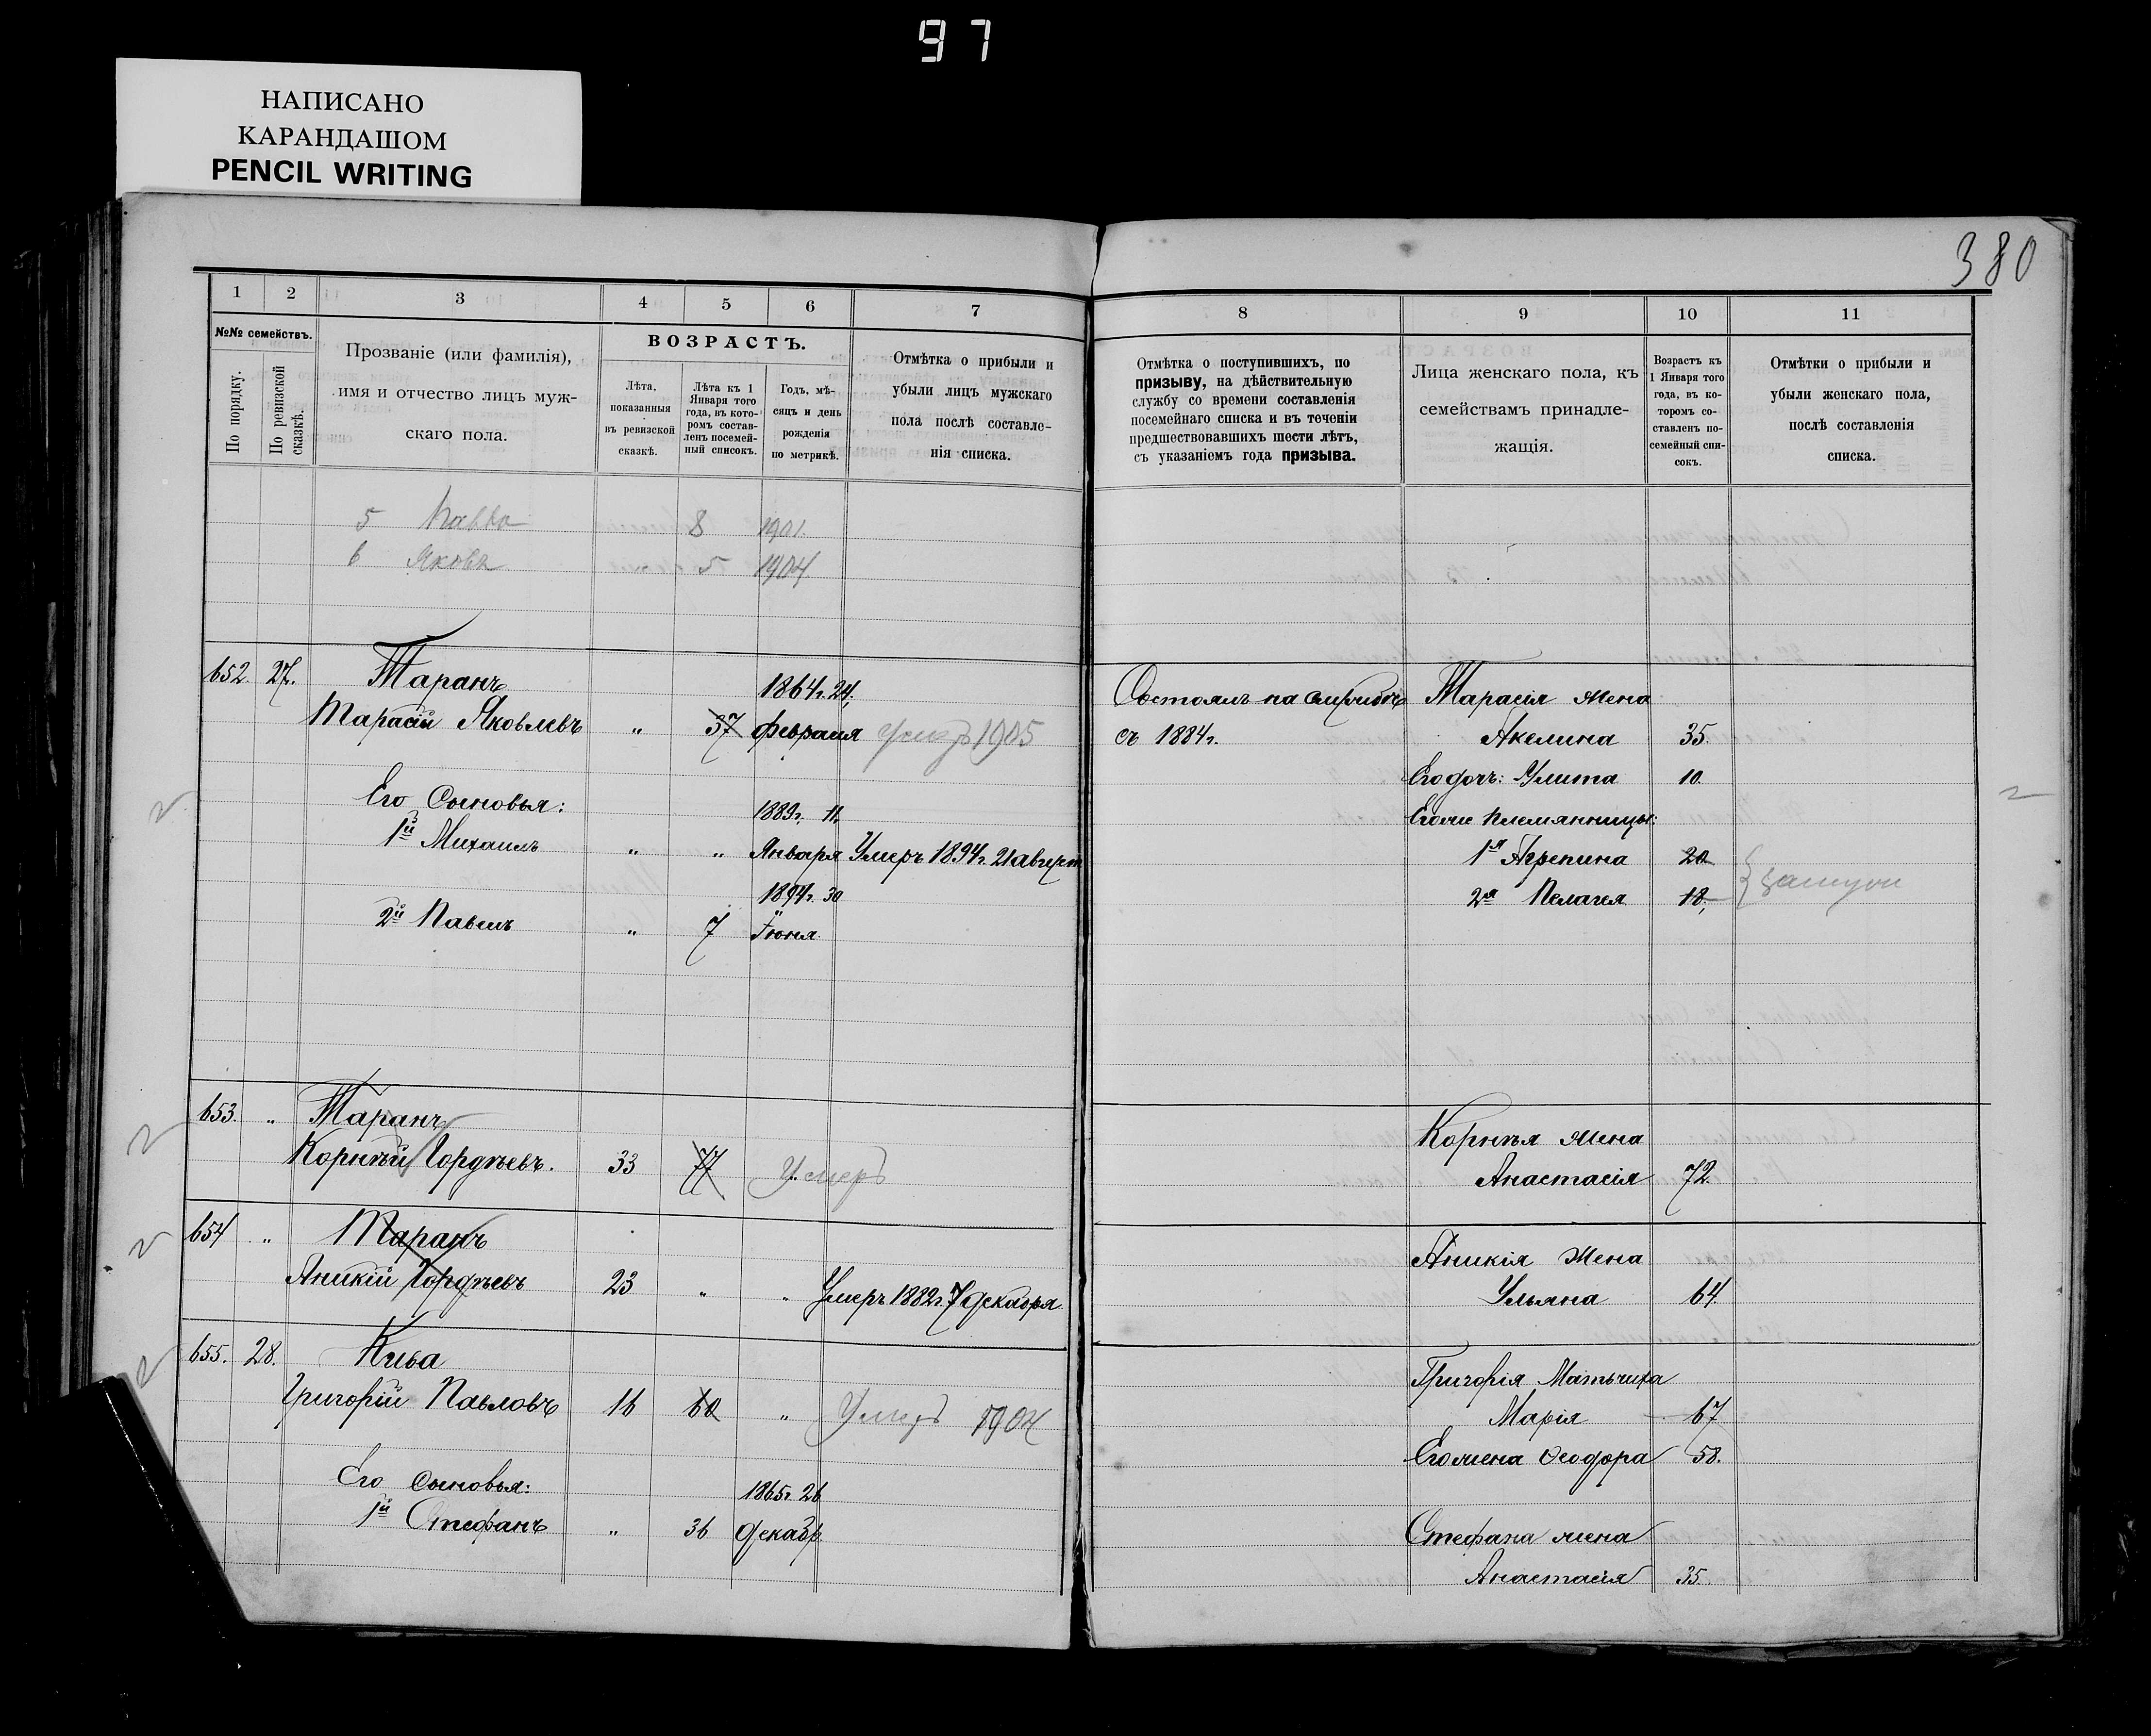 97
НАПИСАНО
КАРАНДАШОМ
PENCIL WRITING
380
1 2 3 4 5 6 7
№№ семействъ.
По порядку.
По ревизской сказкѣ.
Прозваніе (или фамилія),
имя и отчество лицъ муж-
скаго пола.
ВОЗРАСТЪ.
Лѣта,
показанныя
въ ревизской
сказкѣ.
Лѣта къ 1
Января того
года, въ кото-
ромъ состав-
ленъ посемей-
ный списокъ.
Годъ, мѣ-
сяцъ и день
рожденія
по метрикѣ.
Отмѣтка о прибыли и
убыли лицъ мужскаго
пола послѣ составле-
нія списка.
5 8 1901.
6 Яковъ 5 1904
652. 27. Таранъ 1864г. 24,
Тарасій Яковлевъ " 37 февраля умеръ 1905
Его Сыновья: 1889г. 11.
1й Михаилъ " " Января Умеръ 1894г. 21 август
1894г. 30
2й Павелъ " 7 Іюня
653. " Таранъ
Корнѣй Гордѣевъ. 33 77 Умеръ
654 " Таранъ
Аникій Гордѣевъ 23 " " Умеръ 1882г. 7 декабря
655. 28. Кива
Григорій Павловъ 16 60 " Умеръ 1904
Его сыновья: 1865г. 26
1й Стефанъ " 36 декабр.
8 9 10 11
Отмѣтка о поступившихъ, по
призыву, на дѣйствительную
службу со времени составленія
посемейнаго списка и въ теченіи
предшествовавшихъ шести лѣтъ,
съ указаніемъ года призыва.
Лица женскаго пола, къ
семействамъ принадле-
жащія.
Возрастъ къ
1 Января того
года, въ ко-
торомъ со-
ставленъ по-
семейный спи-
сокъ.
Отмѣтки о прибыли и
убыли женскаго пола,
послѣ составленія
списка.
Состоялъ на Тарасія жена
съ 1884г. Акелина 35.
Его дочь: Улита 10.
Его же племянницы:
1я Агрепина 20
2я Пелагея 18, замужи
Корнѣя жена
Анастасія 72.
Аникія Жена
Ульяна 64.
Григорія Матьчиха
Марія 67
Его жена Ѳеодора 58.
Стефана жена
Анастасія 35.